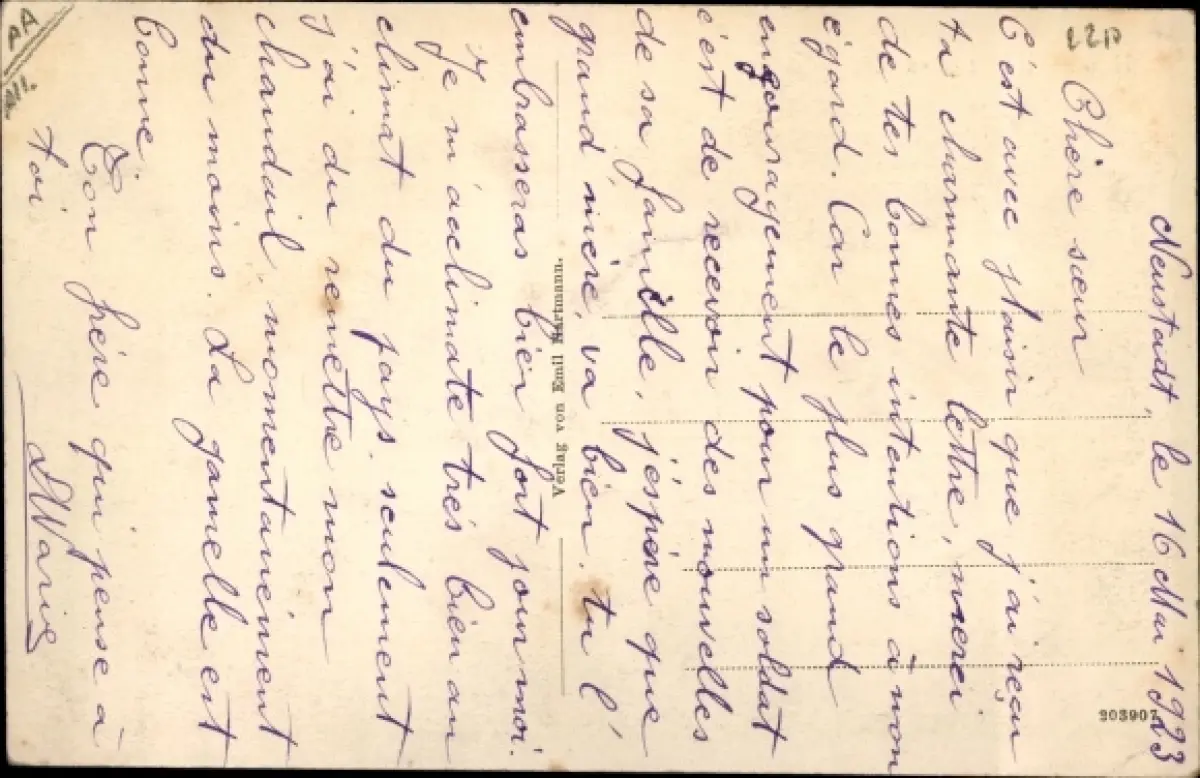 Neustadt, le 16 Mai 1923
Chère sœur
C'est avec plaisir que j'ai reçu
ta charmante lettre, merci
de tes bonnes intentions à mon
égard. Car le plus grand
encouragement pour un soldat
c'est de recevoir des nouvelles
de sa famille. j'éspère que
grand mère, va bien. tu l'
embrasseras bien fort pour moi.
Je m'aclimate très bien au
climat du pays. seulement
j'ai du remettre mon
chandail, momentanément
du moins. La gamelle est
bonne.
Ton frère qui pense à
toi.
Verlag von Emil Hartmann.
203907